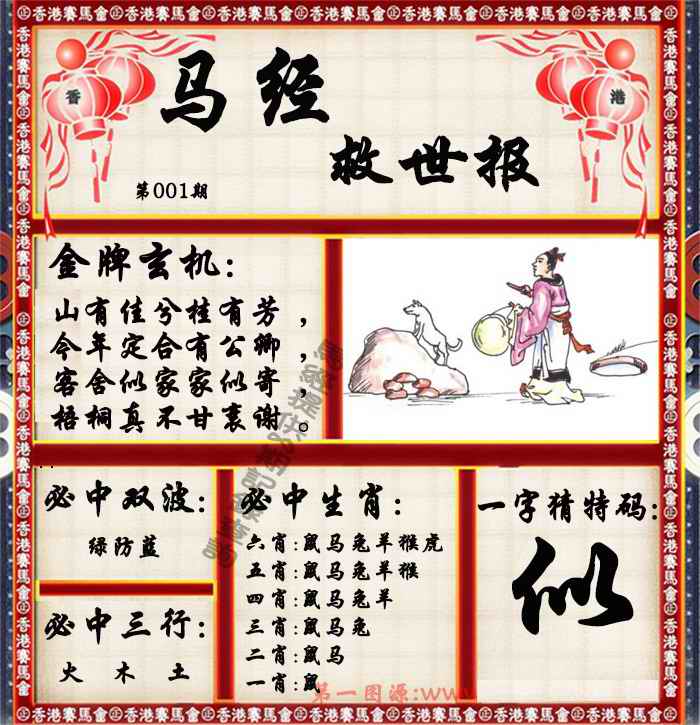 香港賽馬會
香
港
马经
救世报
第001期
金牌玄机：
山有佳兮桂有芳，
今年定合有公卿，
客舍似家家似寄，
梧桐真不甘衰谢。
必中双波：
绿防蓝
必中三行：
火 木 土
必中生肖：
六肖:鼠马兔羊猴虎
五肖:鼠马兔羊猴
四肖:鼠马兔羊
三肖:鼠马兔
二肖:鼠马
一肖:鼠
一字猜特码：
似
第一图源:www